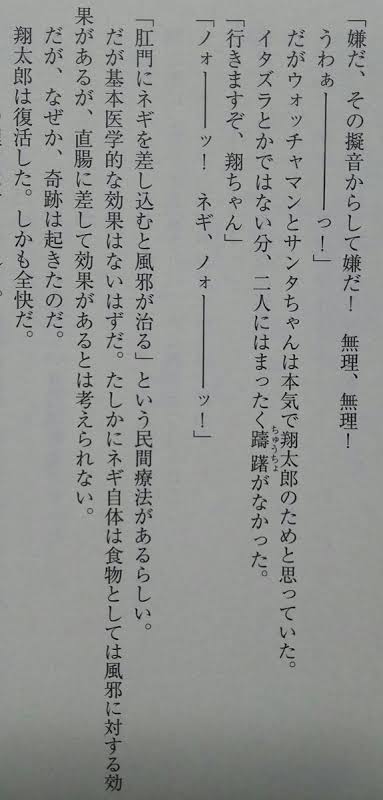 「嫌だ、その擬音からして嫌だ！　無理、無理！
うわぁ――――っ！」
だがウォッチャマンとサンタちゃんは本気で翔太郎のためと思っていた。
イタズラとかではない分、二人にはまったく躊躇がなかった。
ちゅうちょ
「行きますぞ、翔ちゃん」
「ノォ―――ッ！　ネギ、ノォ――――ッ！」
「肛門にネギを差し込むと風邪が治る」という民間療法があるらしい。
だが基本医学的な効果はないはずだ。たしかにネギ自体は食物としては風邪に対する効
果があるが、直腸に差して効果があるとは考えられない。
だが、なぜか、奇跡は起きたのだ。
翔太郎は復活した。しかも全快だ。